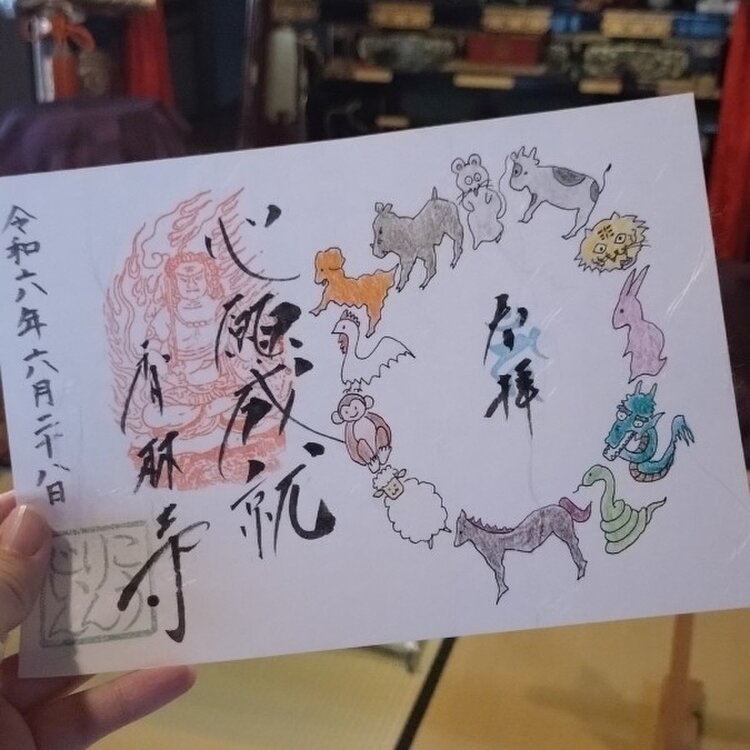 奉拝
心願成就
香林寺
令和六年六月二十八日
こう
りん